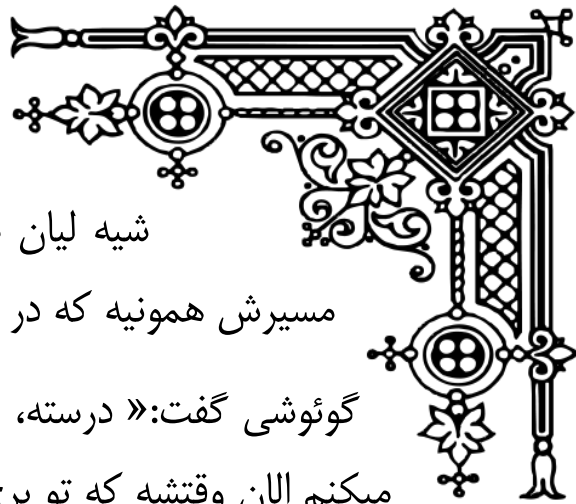 شیه لیان
مسیرش همونیه که در
گوئوشی گفت:« درسته،
میکنم الان وقتشه که تو